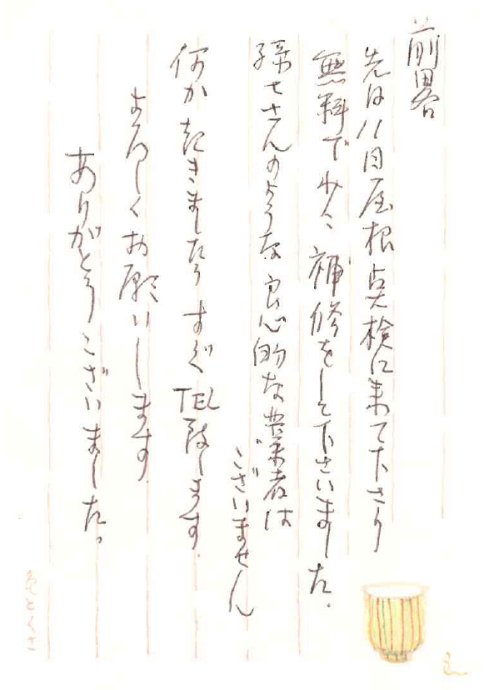 前略
先日11日屋根点検に来て下さり
無料で少々補修をして下さいました。
孫七さんのような良心的な業者は
ございません
何か起きましたらすぐTEL致します.
よろしくお願いします
ありがとうございました。